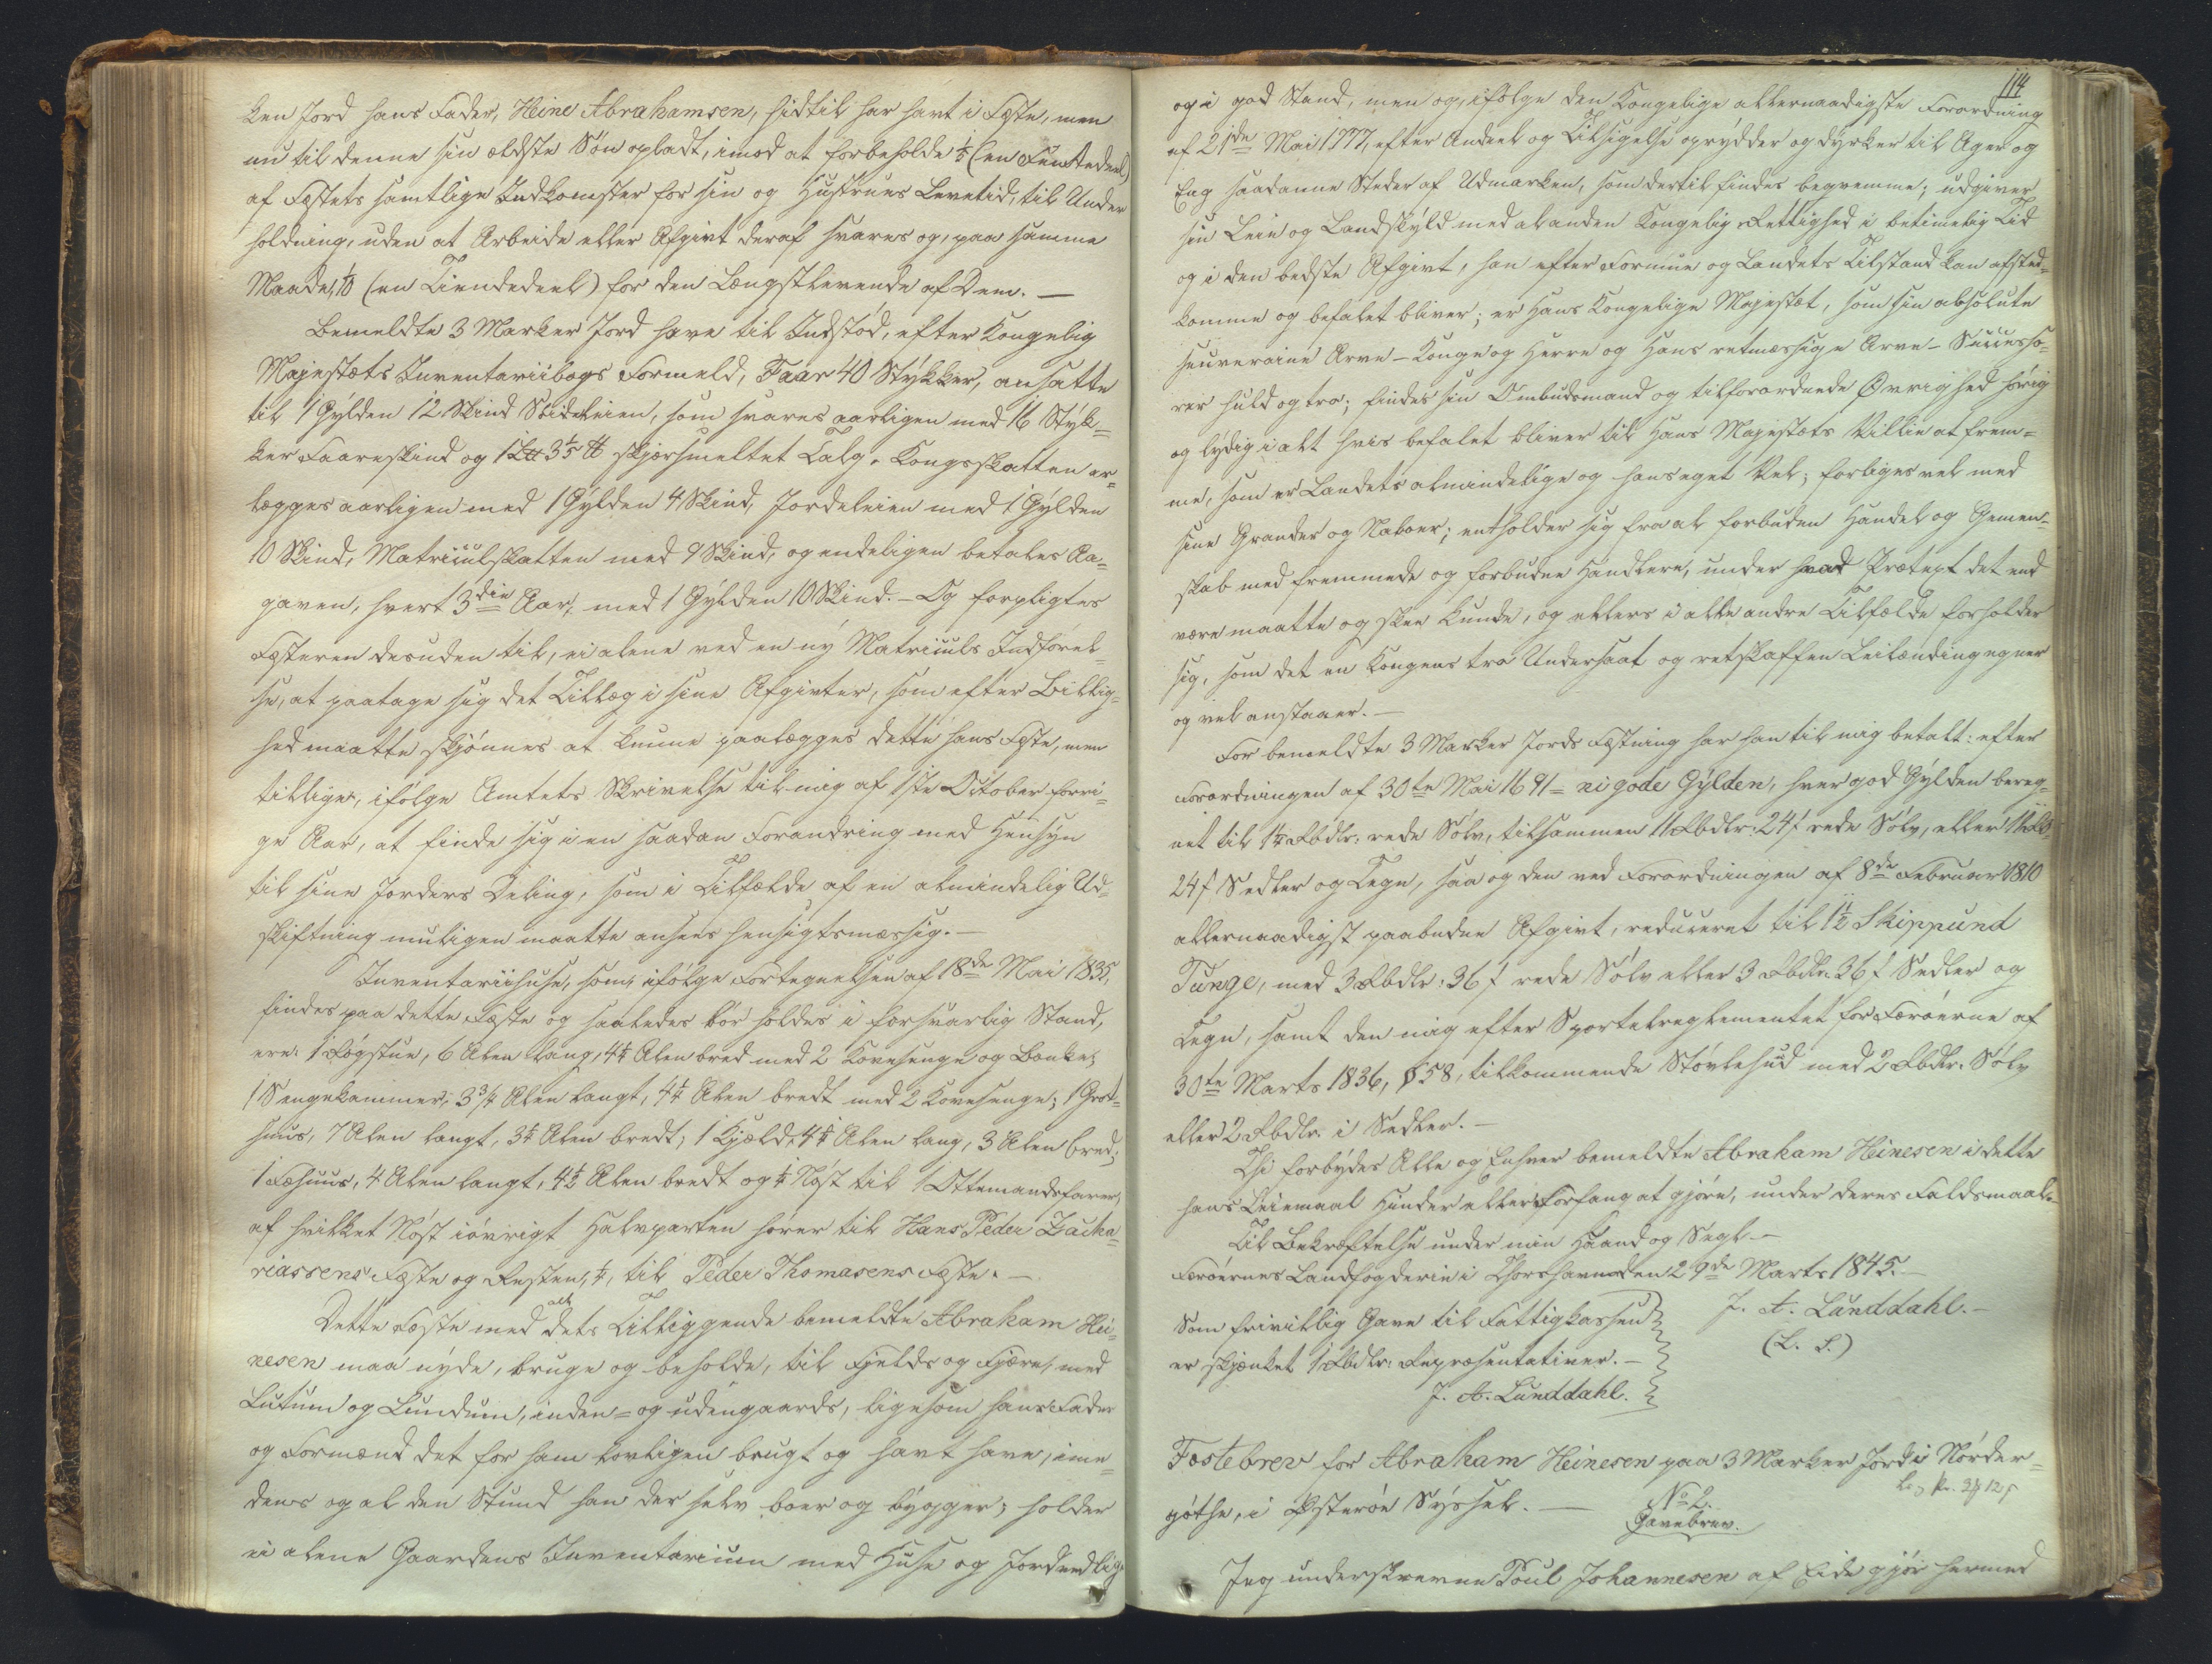 ken Jord hans Fader, Heine Abrahamsen, hidtil har havt i Fæste, men
nu til denne sin ældste Søn opladt, imod at forbeholde 1/5 (en Femtedeel)
af Fæstets samtlige Indkomster for sin og Hustrues Levetid, til Under
holdning, uden at Arbeide eller Afgivt deraf svares og, paa samme
Maade, 1/10 (en Tiendedeel) for den Længstlevende af Dem. —
Bemeldte 3 Marker Jord have til Indstød, efter Kongelig
Majestæts Inventariibogs Formeld, Faar 40 Stykker, ansatte
til 1 Gylden 12 Skind Smideleien, som svares aarligen med 16 Styk=
ker Faareskind og 1 L℔ 3 1/5 ℔ skjærsmeltet Talg. Kongsskatten er=
lægges aarligen med 1 Gylden 4 Skind, Jordeleien med 1 Gylden
10 Skind, Matriculskatten med 9 Skind, og endeligen betales Aa=
gaven, hvert 3die Aar, med 1 Gylden 10 Skind. — Og forpligtes
Fæsteren desuden til, ei alene ved en ny Matriculs Indførel=
se, at paatage sig det Tillæg i sine Afgivter, som efter Billig=
hed maatte skjønnes at kunne paalægges dette hans Fæste, men
tillige, ifølge Amtets Skrivelse til mig af 1ste October forri=
ge Aar, at finde sig i en saadan Forandring med Hensyn
til sine Jorders Deling, som i Tilfælde af en almindelig Ud=
skiftning muligen maatte ansees hensigtsmæssig. —
Inventariihuse, som, ifølge Fortegnelsen af 18de Mai 1835,
findes paa dette Fæste og saaledes bør holdes i forsvarlig Stand,
ere: 1 Røgstue, 6 Alen lang, 4 1/2 Alen bred med 2 Kovesenge og Bænke;
1 Sengekammer, 3 3/4 Alen langt, 4 1/2 Alen bredt med 2 Kovesenge; 1 Grot=
huus, 7 Alen langt, 3 1/2 Alen bredt; 1 Hjeld, 4 1/2 Alen lang, 3 Alen bred;
1 Fæhuus, 4 Alen langt, 4 1/2 Alen bredt og 1/4 Nøst til 1 Ottemandsfarer,
af hvilket Nøst iøvrigt Halvparten hører til Hans Peder Zacha=
riassens Fæste og Resten, 1/4, til Peder Thomasens Fæste. —
Dette Fæste med alt dets Tilliggende bemeldte Abraham Hei=
nesen maa nyde, bruge og beholde, til Fjelds og Fjære, med
Lutum og Lundum, inden= og udengaards, ligesom hans Fader
og Formænd det for ham lovligen brugt og havt have, ime=
dens og al den Stund han der selv boer og bygger; holder
ei alene Gaardens Inventarium med Huse og Jord vedlige
114
og i god Stand, men og, ifølge den Kongelige allernaadigste Forordning
af 21de Mai 1777, efter Andeel og Tilsigelse oprydder og dyrker til Ager og
Eng saadanne Steder af Udmarken, som dertil findes beqvemme; udgiver
sin Leie og Landskyld med al anden Kongelig Rettighed i betimelig Tid
og i den bedste Afgivt, han efter Formue og Landets Tilstand kan afsted=
komme og befalet bliver; er Hans Kongelige Majestæt, som sin absolute
souveraine Arve-Konge og Herre og Hans retmæssige Arve-Successo=
rer huld og tro; findes sin Ombudsmand og tilforordnede Øvrighed hørig
og lydig i alt hvis befalet bliver til Hans Majestæts Villie at frem=
me, som er Landets almindelige og hans eget Vel; forliges vel med
sine Grander og Naboer; entholder sig fra al forbuden Handel og Gemen=
skab med fremmede og forbudne Handlere, under hvad Prætext det end
være maatte og skee kunde, og ellers i alle andre Tilfælde forholder
sig, som det en Kongens tro Undersaat og retskaffen Leilænding egner
og vel anstaaer. —
For bemeldte 3 Marker Jords Fæstning har han til mig betalt: efter
Forordningen af 30te Mai 1691 = ni gode Gylden, hver god Gylden bereg=
net til 1 1/4 Rbdlr. rede Sølv, tilsammen 11 Rbdlr. 24 ß rede Sølv, eller 11 Rb
24 ß Sedler og Tegn, saa og den ved Forordningen af 8de Februar 1810
allernaadigst paabudne Afgivt, reduceret til 1 1/2 Skippund
Tunge, med 3 Rbdlr. 36 ß rede Sølv eller 3 Rbdlr. 36 ß Sedler og
Tegn, samt den mig efter Sportelreglementet for Færøerne af
30te Marts 1836, § 58, tilkommende Støvlehud med 2 Rbdlr. Sølv
eller 2 Rbdlr. i Sedler. —
Thi forbydes Alle og Enhver bemeldte Abraham Heinesen i dette
hans Leiemaal Hinder eller Forfang at gjøre, under deres Faldsmaal.
Til Bekræftelse under min Haand og Segl. —
Færøernes Landfogderie i Thorshavn den 29de Marts 1845. —
J. A. Lunddahl. —
(L. S.)
Som frivillig Gave til Fattigkassen
er skjænket 1 Rbdlr. Repræsentativer. —
J. A. Lunddahl.
Fæstebrev for Abraham Heinesen paa 3 Marker Jord i Nørder=
gøthe, i Østerøe Syssel. —
No 2.
Gavebrev.
Jeg underskrevne Poul Johannesen af Eide gjør hermed